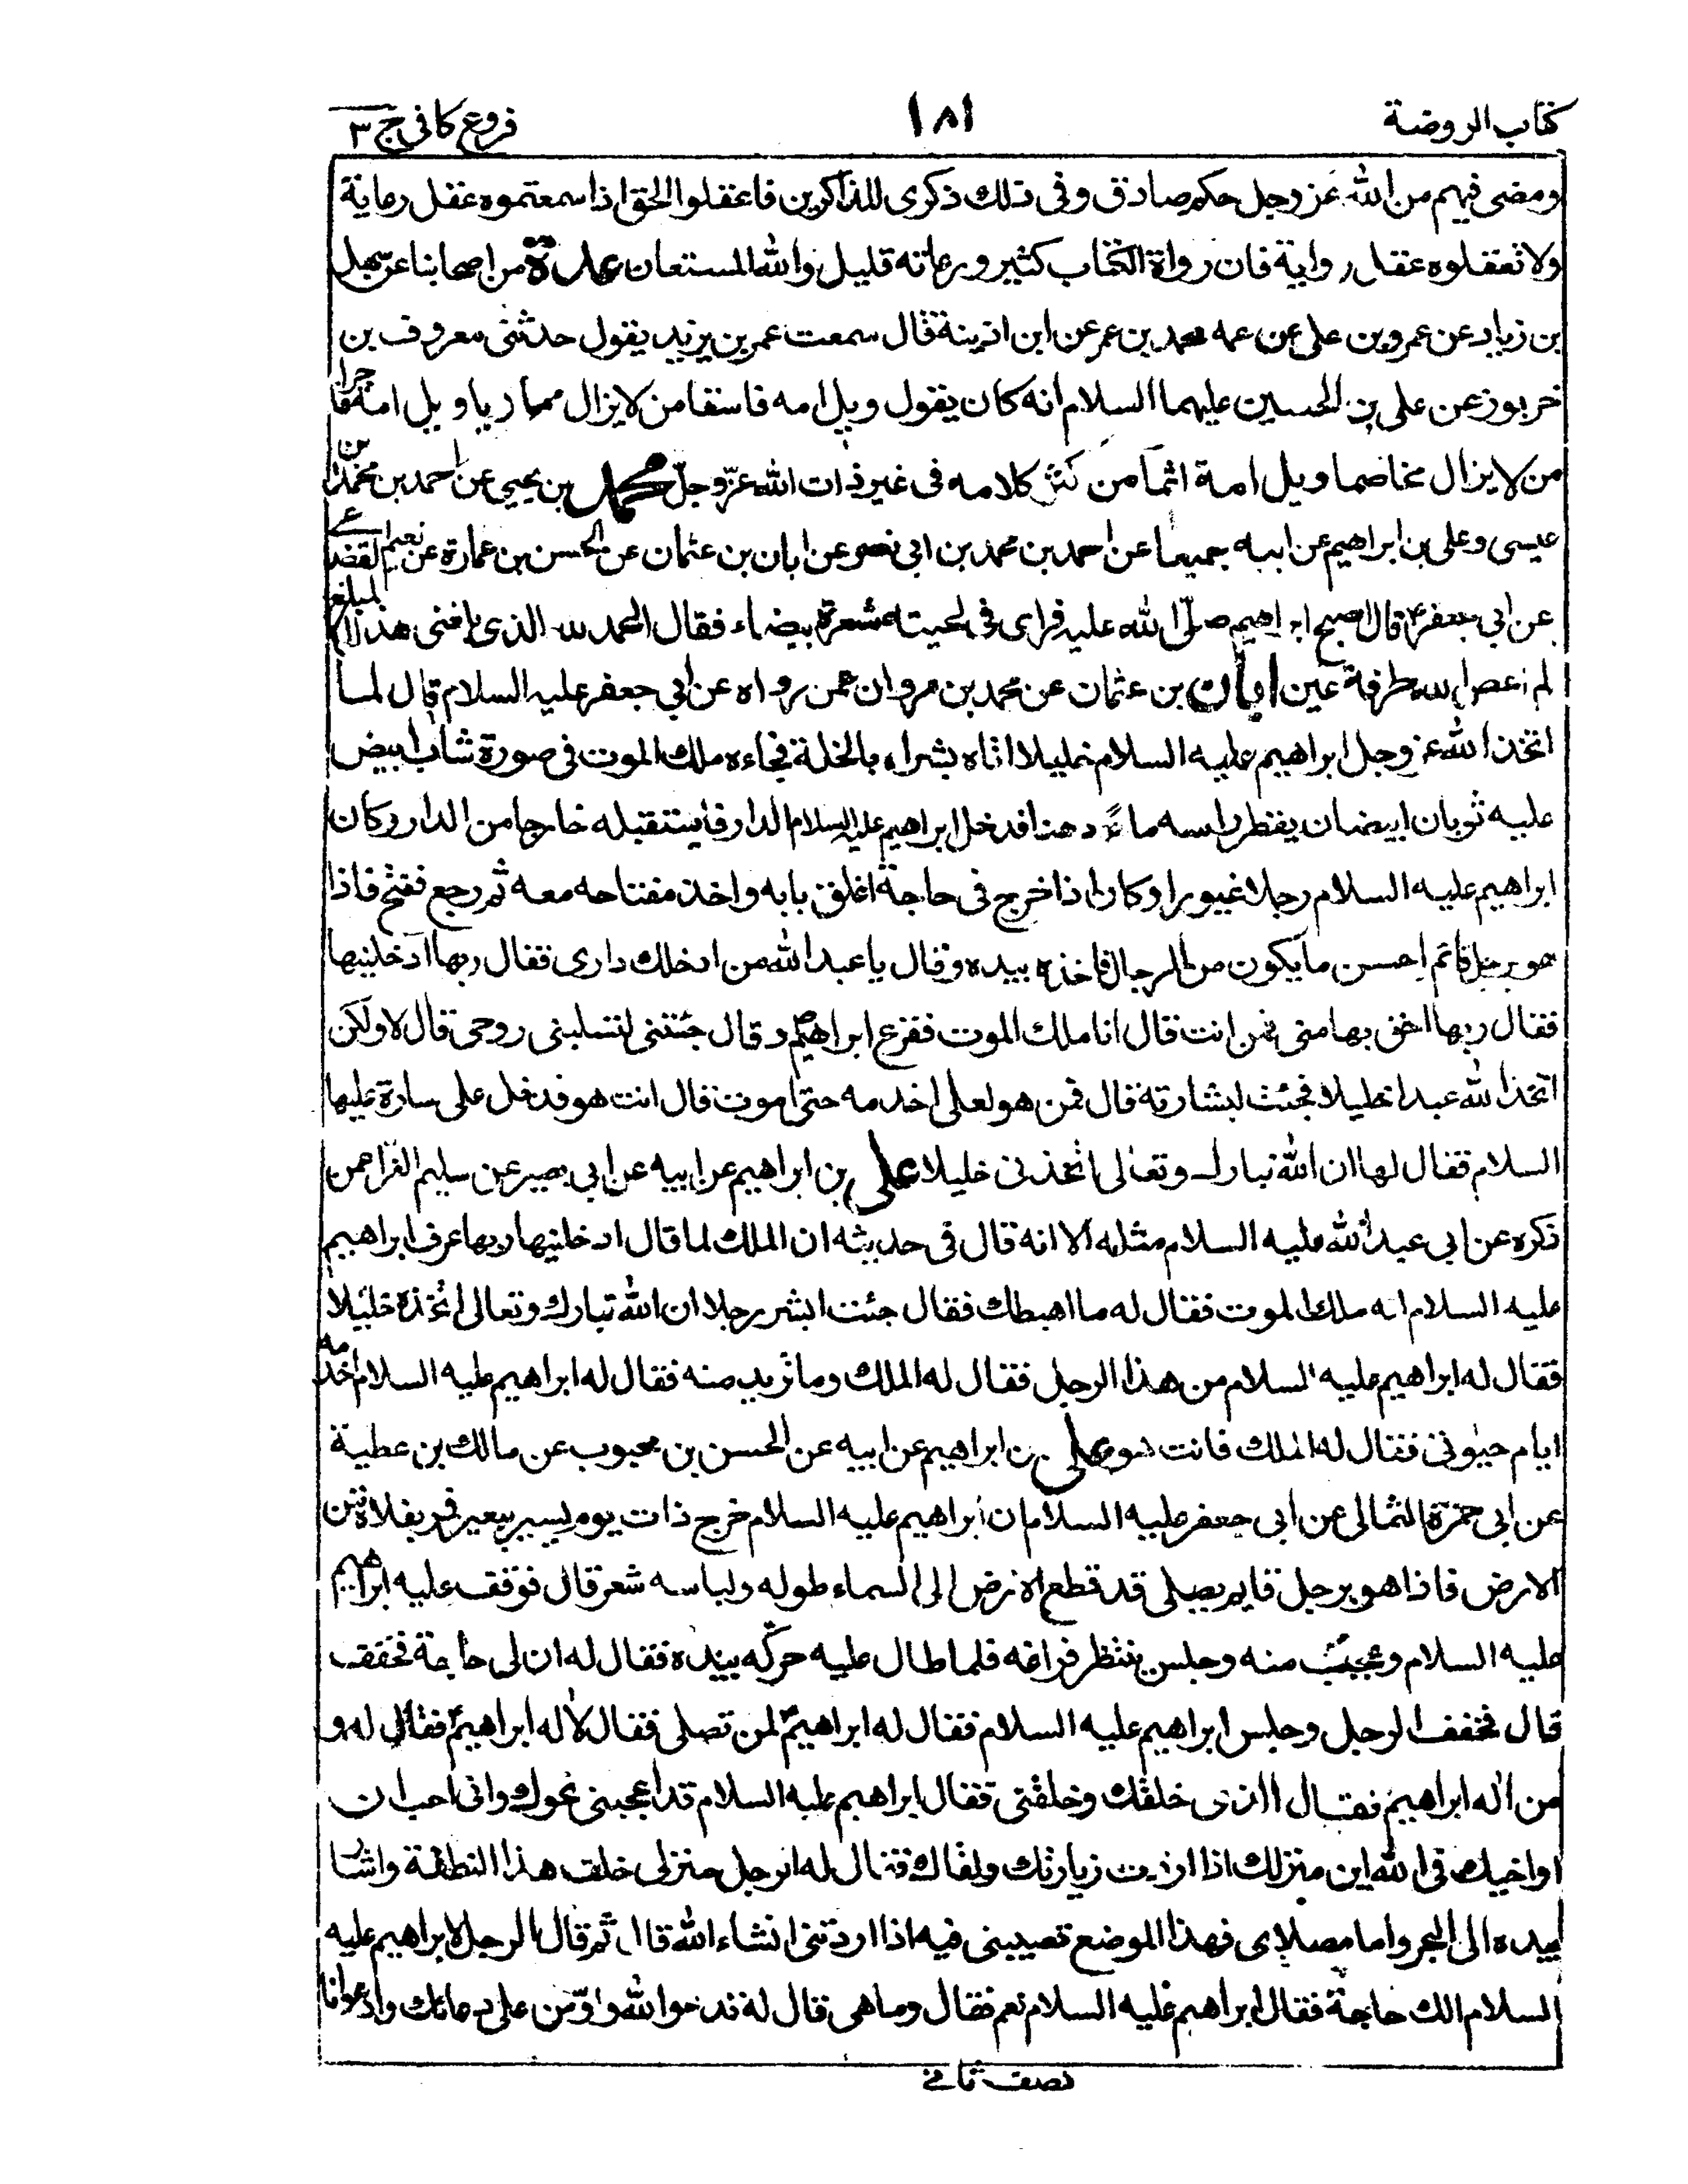 كتاب الروضة
١٨١
فروع كافى ج ٣
ومضى فيهم من الله عز وجل حكم صادق وفى ذلك ذكرى للذاكرين فاعقلوا الحق اذا سمعتموه عقل رعاية
ولا تعقلوه عقل رواية فان رواة الكتاب كثير ورعاته قليل والله المستعان عدة من اصحابنا عن سهل
بن زياد عن عمرو بن على عن عمه محمد بن عمر عن ابن اذينة قال سمعت عمر بن يزيد يقول حدثنى معروف بن
خربوز عن على بن الحسين عليهما السلام انه كان يقول ويل امه فاسقا من لا يزال مماريا ويل امه فاجرا
من لا يزال مخاصما ويل امة اثما من كثر كلامه فى غير ذات الله عزّ وجلّ محمد بن يحيى عن احمد بن محمد بن
عيسى وعلى بن ابراهيم عن ابيه جميعا عن احمد بن محمد بن ابى نصر عن ابان بن عثمان عن الحسن بن عمارة عن نعيم القضاعى
عن ابى جعفر ع قال اصبح ابراهيم صلّى الله عليه فراى فى لحيته شعرة بيضاء فقال الحمد لله الذى بلغنى هذا المبلغ
لم اعص الله طرفة عين ابان بن عثمان عن محمد بن مروان عمن رواه عن ابى جعفر عليه السلام قال لما
اتخذ الله عز وجل ابراهيم عليه السلام خليلا اتاه بشراه بالخلة فجاءه ملك الموت فى صورة شاب ابيض
عليه ثوبان ابيضان يقطر راسه ماء ودهنا فدخل ابراهيم عليه السلام الدار فاستقبله خارجا من الدار وكان
ابراهيم عليه السلام رجلا غيورا وكان اذا خرج فى حاجة اغلق بابه واخذ مفتاحه معه ثم رجع ففتح فاذا
هو برجل قائم احسن ما يكون من الرجال فاخذه بيده وقال يا عبد الله من ادخلك دارى فقال ربها ادخلنيها
فقال ربها احق بها منى فمن انت قال انا ملك الموت ففزع ابراهيم وقال جئتنى لتسلبنى روحى قال لا ولكن
اتخذ الله عبدا خليلا فجئت لبشارته قال فمن هو لعلى اخدمه حتى اموت قال انت هو فدخل على سارة عليها
السلام فقال لها ان الله تبارك وتعالى اتخذنى خليلا على بن ابراهيم عن ابيه عن ابى بصير عن سليم الفرّا عمن
ذكره عن ابى عبد الله عليه السلام مثله الا انه قال فى حديثه ان الملك لما قال ادخلنيها ربها عرف ابراهيم
عليه السلام انه ملك الموت فقال له ما اهبطك فقال جئت ابشر رجلا ان الله تبارك وتعالى اتخذه خليلا
فقال له ابراهيم عليه السلام من هذا الرجل فقال له الملك وما تريد منه فقال له ابراهيم عليه السلام اخدمه
ايام حيوتى فقال له الملك فانت هو على بن ابراهيم عن ابيه عن الحسن بن محبوب عن مالك بن عطية
عن ابى حمزة الثمالى عن ابى جعفر عليه السلام ان ابراهيم عليه السلام خرج ذات يوم يسير ببعير فمر بفلاة من
الارض فاذا هو برجل قايم يصلى قد قطع الارض الى السماء طوله ولباسه شعر قال فوقف عليه ابراهيم
عليه السلام وعجب منه وجلس ينتظر فراغه فلما طال عليه حركه بيده فقال له ان لى حاجة فخفف
قال فخفف الرجل وجلس ابراهيم عليه السلام فقال له ابراهيم لمن تصلى فقال لاله ابراهيم فقال له و
من اله ابراهيم فقال الذى خلقك وخلقنى فقال ابراهيم عليه السلام قد اعجبنى نحوك وانى احب ان
اواخيك فى الله اين منزلك اذا اردت زيارتك ولقاك فقال له الرجل منزلى خلف هذا النطفة واشار
بيده الى البحر واما مصلاى فهذا الموضع تصيبنى فيه اذا اردتنى انشاء الله قال ثم قال الرجل لابراهيم عليه
السلام الك حاجة فقال ابراهيم عليه السلام نعم فقال وما هى قال له تدعو الله واؤمن على دعائك وادعو انا
نصف ثانے